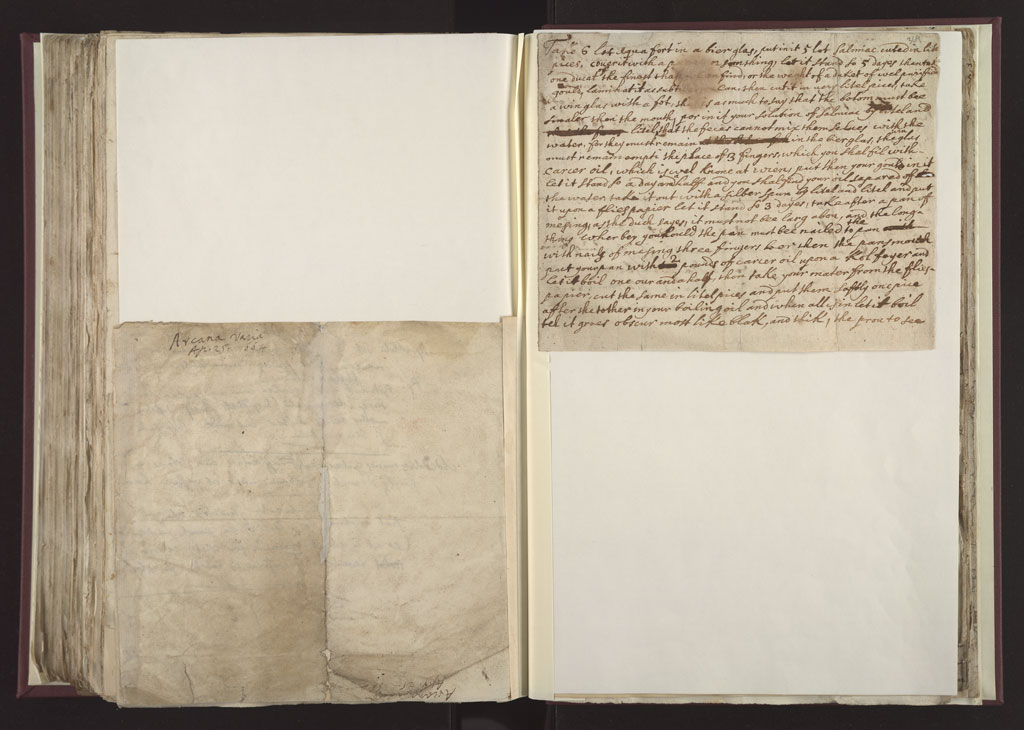 Arcana Varia
Apr. 25.
Take 6 lot Aqua fort in a bier glas, put in it 5 lot Salmiac cuted in litel
pices, cover it with a or somthing, let it stand so 5 dayes then take
one ducat the finest that find, or the weight of a ducat of wel purified
gould, laminat it as subt can then cut it in very litel pices, take
a win glas with a fot, th s as much to say that the botom must bee
smaler then the mouth, por in it your solution of Salmiac by litel and
litel that the feces cannot mix them selves with the
water, for they must remain in the bierglas, the win glas
must remain empti the place of 3 fingers, which you shal fil with
carcer oil, which is wel knone at wiens, put then your gould in it
let it stand so a day an half and you shal find your oil separed of
the water, take it out with a silber spun by litel and litel and put
it upon a flies papier let it stand so 3 dayes, take after a pan of
mesing, as the duch sayes, it must not bee larg abon, and the long
thing wher bey you hould the pan must bee nailed to the pan
with nails of mesing three fingers loer then the pans mouth
put your pan with pounds of carcer oil upon a kol foyer and
let it boil one our and a half then take your mater from the flies-
papier, cut the same in litel pices and put them softly one pice
after the tother in your boiling oil and when all, in let it boil
til it groes obscur most like blak, and thik, the prou to see